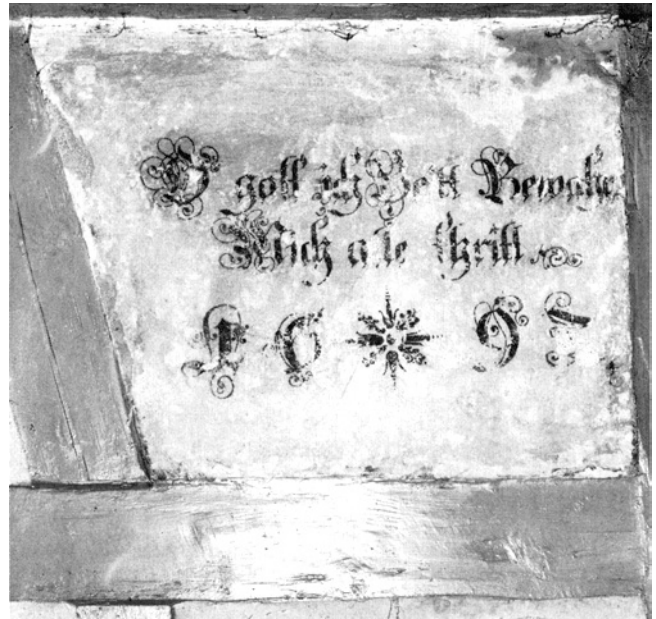 O gott ich Bett Bewahr
Mich alle thritt
16